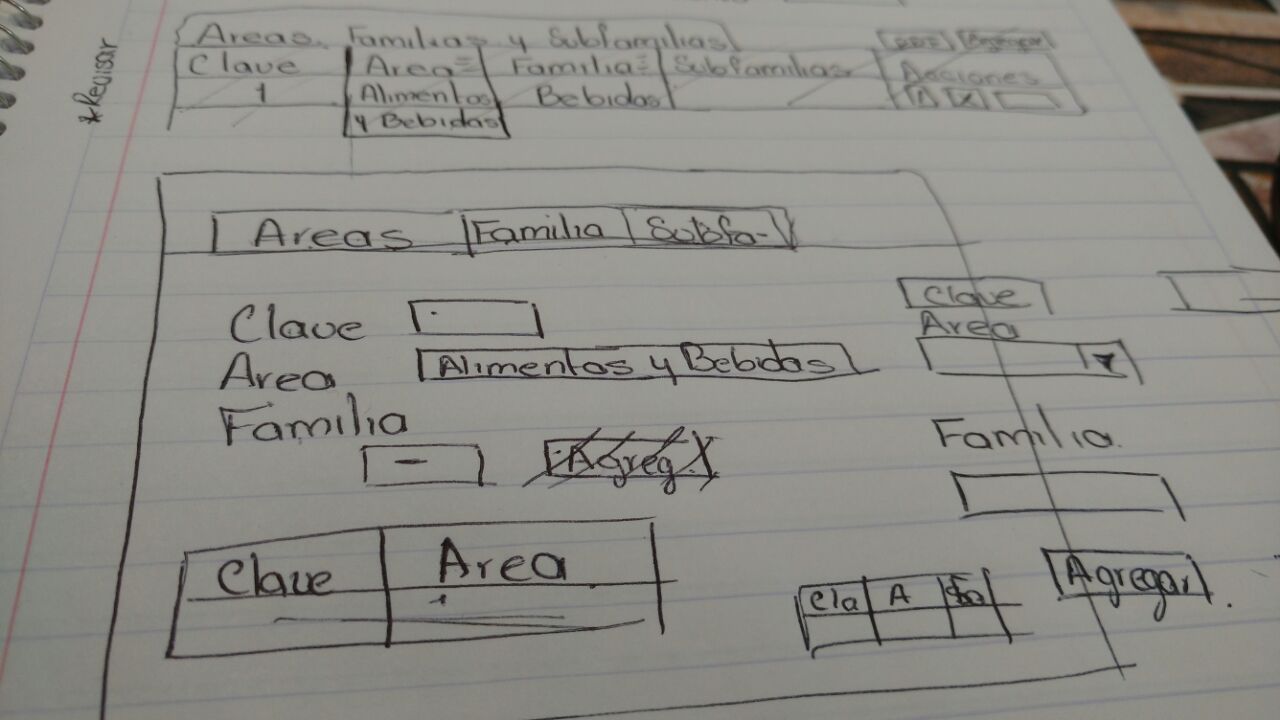 *Revisar
Areas, Familias y Subfamilias PDF Agregar
Clave Area Familia Subfamilias Acciones
1 Alimentos Bebidas
y Bebidas
Areas Familia Subfa-
Clave
Area Alimentos y Bebidas
Familia
Agreg.
Clave Area
Clave
Area
Familia
Agregar
Cla A